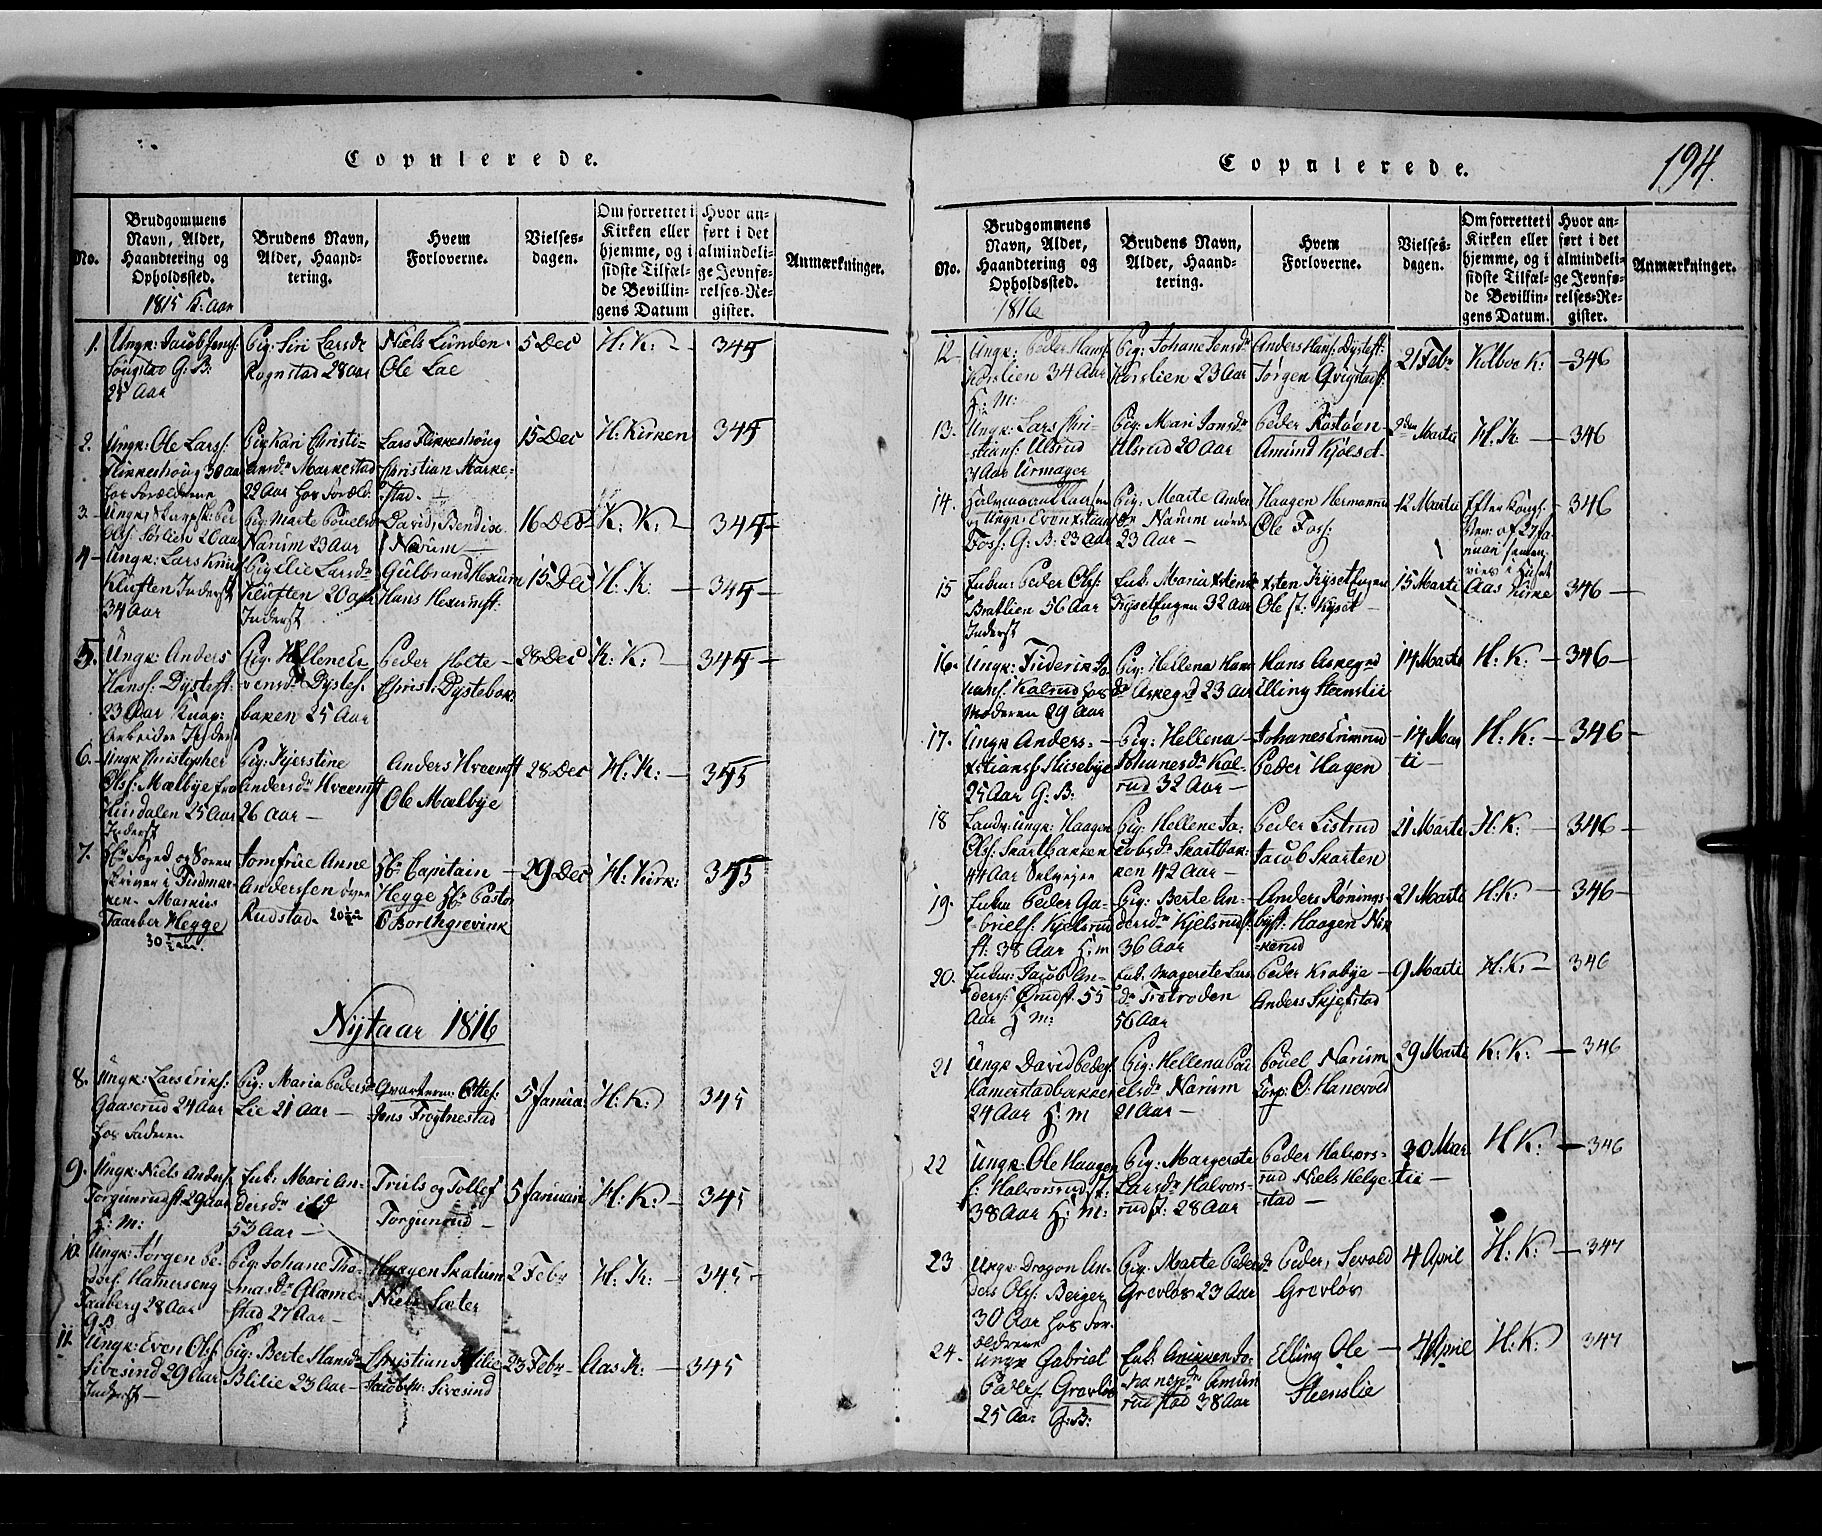 Copulerede.
No.
Brudgommens
Navn, Alder,
Haandtering og
Opholdssted.
1815 K: Aar
Brudens Navn,
Alder, Haand-
tering.
Hvem
Forloverne.
Vielses-
dagen.
Om forrettet i
Kirken eller
hjemme, og i
sidste Tilfæl-
de Bevillin-
gens Datum
Hvor an-
ført i det
almindeli-
ge Jevnfø-
relses-Re-
gister.
Anmærkninger.
1.
Ungk: Jacob Jens:
Sougstad G: B:
25 Aar
Pig: Siri Larsdr
Rognstad 28 aar
Niels Lunden
Ole Lae
5 Dec
H: K:
345
2.
Ungk: Ole Lars:
Flikkeshoug 30 aar
hos Forældrene
Pig Kari Christi-
ansdr Markestad
22 Aar hos Foræld:
Lars Flikkeshoug
Christian Marke-
stad
15 Dec
H: Kirken
345
3.
Pig: Marte Pouelsdr
Narum 23 Aar
David, Bendix
Narum
16 Dec
K: K:
345
4
Ungk: Lars Knud
Kluften Inderst
34 aar
Pig Elie Larsdr
Kluften 20 aar
Inderst
Gulbrand Hexum
Hans Hexumst:
15 Dec
H: K:
345
5.
Ungk: Anders
Hans: Dystest:
23 Aar
Arbeider Inderst
Pig: Hellene E
vensdr Dyste-
baken 25 Aar
Peder Holte
Christ: Dystebak:
28 Dec
K: K:
345
6.
Ungk Christopher
Ols: Mælbye fra
Hurdalen 25 Aar
Inderst
Pig: Kjerstine
Andersdr Hveemst
26 Aar
Anders Hveemst
Ole Mælbye
28 Dec
H: K:
345
7.
Hr: Foged og Soren
skriver i Findmar
ken Markus
Taarber Hegge
30 1/2 aar.
Jomfrue Anne
Anderssen
Rudstad 20 1/2
Hr: Capitain
Hegge Hr: Pastor
O Borchgrevink
29 Dec
H: Kirk:
345
Nytaar 1816
8.
Ungk: Lars Eriks:
Gaaserud 24 Aar
hos Faderen
Pig: Maria Pedersdr
Lie 21 Aar
Qvarterm: Ottes:
Jens Trogtnestad
5 Janua:
H: K:
345
9.
Ungk: Niels Anders:
Torgunrudst: 29 aar
H: M:
Enk: Mari An-
dersdr Eild
53 Aar
Truls og Tollef
Torgunrud
5 Januari
H: K:
345
10.
Ungk: Jørgen Pe
ders: Hamerseng
Tauberg 28 Aar
G B
Pig: Johane Tho
masdr Glæme
stad 27 Aar
Haagen Skatum
Niels Sæter
2 Febr
H: K:
345
11.
Ungk: Even Ols
Sivesind 29 Aar
Inderst
Pig: Berte Hansdr
Blilie 23 Aar
Christian Blilie
Jacob Sivesind
23 Febr
Aas K:
345
Copulerede.
194.
No.
Brudgommens
Navn, Alder,
Haandtering og
Opholdssted.
1816
Brudens Navn,
Alder, Haand-
tering.
Hvem
Forloverne.
Vielses-
dagen.
Om forrettet i
Kirken eller
hjemme, og i
sidste Tilfæl-
de Bevillin-
gens Datum.
Hvor an-
ført i det
almindeli-
ge Jevnfø-
relses-Re-
gister.
Anmærkninger.
12
Ungk: Peder Hans:
Korslien 34 Aar
H: M:
Pig: Johane Jensdr
Korslien 23 Aar
Anders Hans: Dystest:
Jørgen Qvigstad:
21 Febr
Kolboe K:
346
13.
Ungk: Lars Chri-
stians: Alsrud
Aar Urmager
Pig: Mari Jonsdr
Alsrud 20 Aar
Peder Rostøen
Amund Kjølset
Martii
H: K:
346
14.
og Ungk: Even
Foss: G: B: 23 aar
Pig: Marte Ander
dr Narum
23 Aar
Haagen Hermanrud
Ole Foss:
12 Martii
Efter Kongl:
Bev: af 27 Ja
nuari
346
15
Enkm: Peder Ols:
Bratlien 56 Aar
Inderst
Enk: Maria
Kysetengen 32 Aar
Kysetengen
Ole st: Kyset
15 Martii
Aas Kirke
346
16.
Ungk: Friderik Jo
hans: Kalrud hos
Moderen 29 Aar
Pig: Hellena Hans
dr Askegrd 23 aar
Hans Askegrd
Elling Steenslie
14 Marti
H: K:
346
17.
Ungk Anders
Xstians: Husebye
25 Aar G: B:
Pig: Hellena
Johanesdr Kal-
rud 32 Aar
Johanes Erixrud
Peder Hagen
14 Mar
ti
H: K:
346
18
Landv: Ungk: Haagen
Ols: Skartbakken
44 Aar Selveyer
Pig: Hellene Ja:
cobsdr Skartbak
ken 42 Aar
Peder Listrud
Jacob Skarten
21 Marti
H: K:
346
19.
Enkm Peder Ga-
briels: Kjelsrud
st: 38 Aar H: M
Pig: Berte An-
dersdr Kjelsrudst:
36 Aar
Anders Rønings-
byst: Haagen Nik
kerud
21 Marti
H: K:
346
20.
Enkm: Jacob An-
ders: 55
Aar H M:
Enk: Magrete Lars
dr Tostroden
56 Aar
Peder Krabye
Anders Skjefstad
9 Marti
H: K:
346
21
Ungk David Peders:
Hamerstadbakken
24 Aar H: M
Pig: Hellena Pou
elsdr Narum
21 Aar
Pouel Narum
Corp: O: Hanevold
29 Marti
K: K:
346
22
Ungk: Ole Haagen
s: Halvorsrudst:
38 Aar H: M:
Pig: Margerete
Larsdr Halvors-
rudst: 28 Aar
Peder Halvors-
rud Niels Helge
stad
30 Mar
tii
H K:
346
23
Ungk: Dragon An-
ders Ols: Berger
30 Aar hos For-
ældrene
Pig: Marte Pedersdr
Grevløs 23 Aar
Peder, Sevald
Grevløs
4 April
H: K:
347
24.
Ungk Gabriel
Peders: Grevløs
25 Aar G: B:
Enk:
rud stad 38 Aar
Elling Ole
Steenslie
4 April
H: K:
347